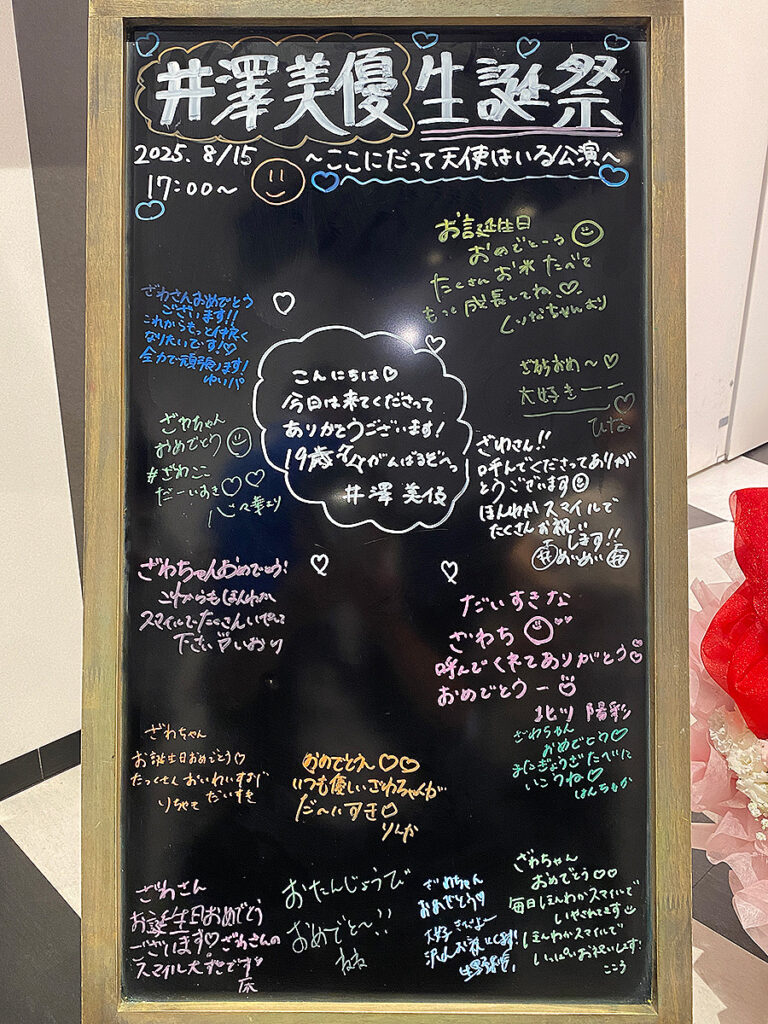 井澤美優生誕祭
2025. 8/15 ～ここにだって天使はいる公演～
17:00～
お誕生日
おめでとーう
たくさんお米たべて
もっと成長してね♡
くりなちゃんより
ざわさんおめでとう
ございます!!
これからもっと仲良く
なりたいです!♡
全力で頑張ります!
ゆいパ
こんにちは♡
今日は来てくださって
ありがとうございます!
19歳 がんばるぞーっ
井澤美優
おめ～♡
大好きーー
ひな
ざわちゃん
おめでとう
#ざわここ
だーいすき♡♡
心々華より
ざわさん!!
呼んでくださってありが
とうございます
ほんわかスマイルで
たくさんお祝い
します!!
めいめい
ざわちゃんおめでとう!
これからもほんわか
スマイルでたくさんいやして
下さい♡いおり
だいすきな
ざわち
呼んでくれてありがとう♡
おめでとうー
北川 陽彩
ざわちゃん
お誕生日おめでとう♡
たっくさんおいわいするね
りちゃも だいすき
おめでとうー♡♡
いつも優しいざわちゃんが
だ～いすき♡
りんか
ざわちゃん
おめでとう♡
またぎょうざたべに
いこうね♡
はんちゃか
ざわさん
お誕生日おめでとう
ございます♡ざわさんの
スマイル大すきです
おたんじょうび
おめでと～!!
ねね
ざわちゃん
おめでとう
大好きだよー
沢山お祝いします!
ざわちゃん
おめでとう♡♡
毎日ほんわかスマイルで
いやされてます
ほんわかスマイルで
いっぱいお祝いします!
こころ